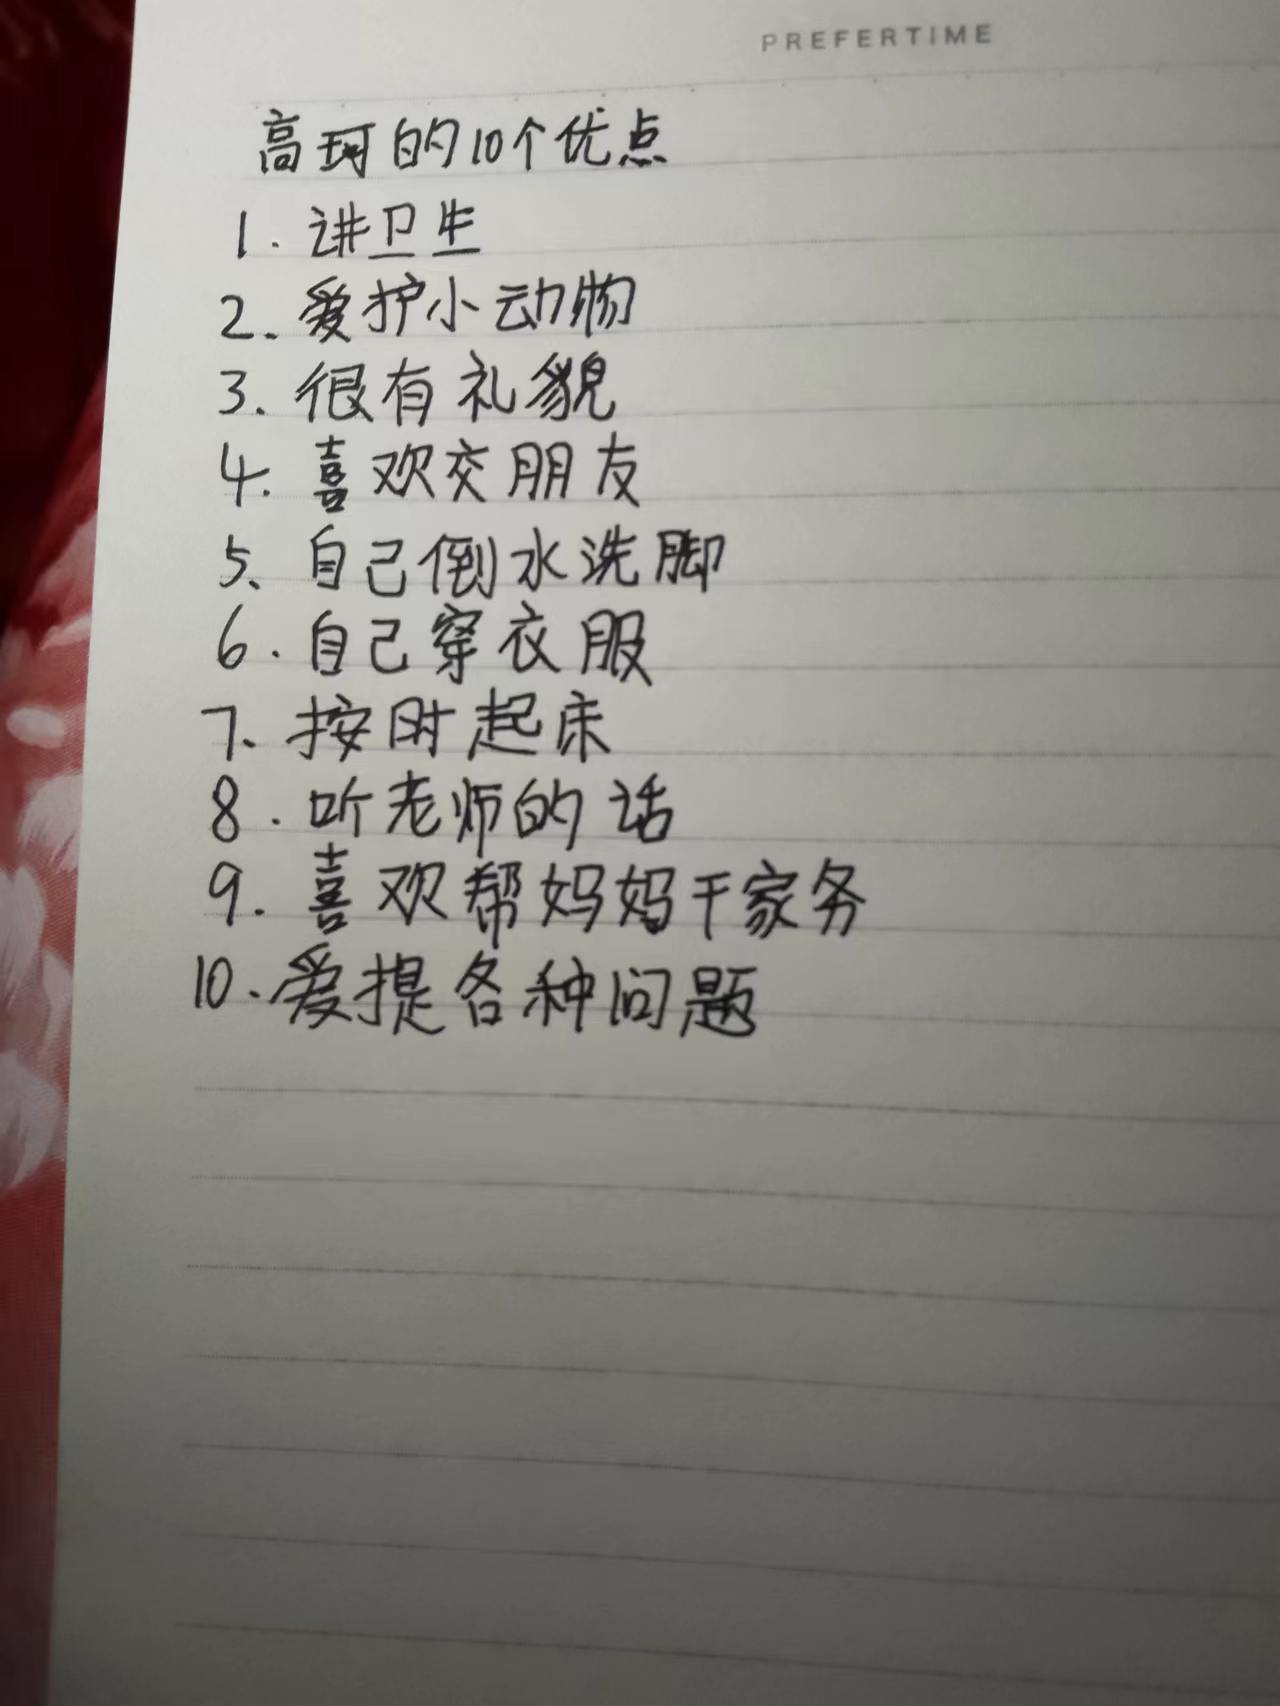 PREFERTIME
高珂的10个优点
1. 讲卫生
2. 爱护小动物
3. 很有礼貌
4. 喜欢交朋友
5. 自己倒水洗脚
6. 自己穿衣服
7. 按时起床
8. 听老师的话
9. 喜欢帮妈妈干家务
10. 爱提各种问题